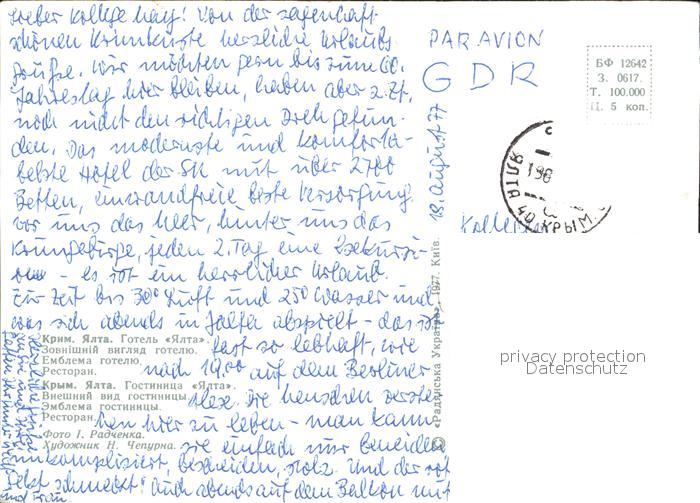 Lieber Kollege Hay! Von der sagenhaft
schönen Krimküste herzliche Urlaubs
grüße. Wir möchten gern bis zum 60.
Jahrestag hier bleiben, haben aber z. Zt.
noch nicht den richtigen Dreh gefun
den. Das modernste und komforta-
belste Hotel der SU mit über 2700
Betten, einwandfreie beste Versorgung
vor uns das Meer, hinter uns das
Krimgebirge, jeden 2. Tag eine Exkursi-
on - es ist ein herrlicher Urlaub.
Zur Zeit bis 30° Luft und 25° Wasser und
was sich abends in Jalta abspielt - das ist
fast so lebhaft, wie
nach 19.00 auf dem Berliner
Alex. Die Menschen verste
hen hier zu leben - man kann
sie einfach nur beneiden
unkompliziert, bescheiden, stolz. Und der
Sekt schmeckt! Auch abends auf dem Balkon mit
Крим. Ялта. Готель «Ялта».
Зовнішній вигляд готелю.
Емблема готелю.
Ресторан.
Крым. Ялта. Гостиница «Ялта».
Внешний вид гостиницы.
Эмблема гостиницы.
Ресторан.
Фото І. Радченка.
Художник Н. Чепурна.
© «Радянська Україна», 1977. Київ.
18. August 77
PAR AVION
GDR
БФ 12642
З. 0617.
Т. 100.000
Ц. 5 коп.
ЯЛТА
КРЫМ.
privacy protection
Datenschutz